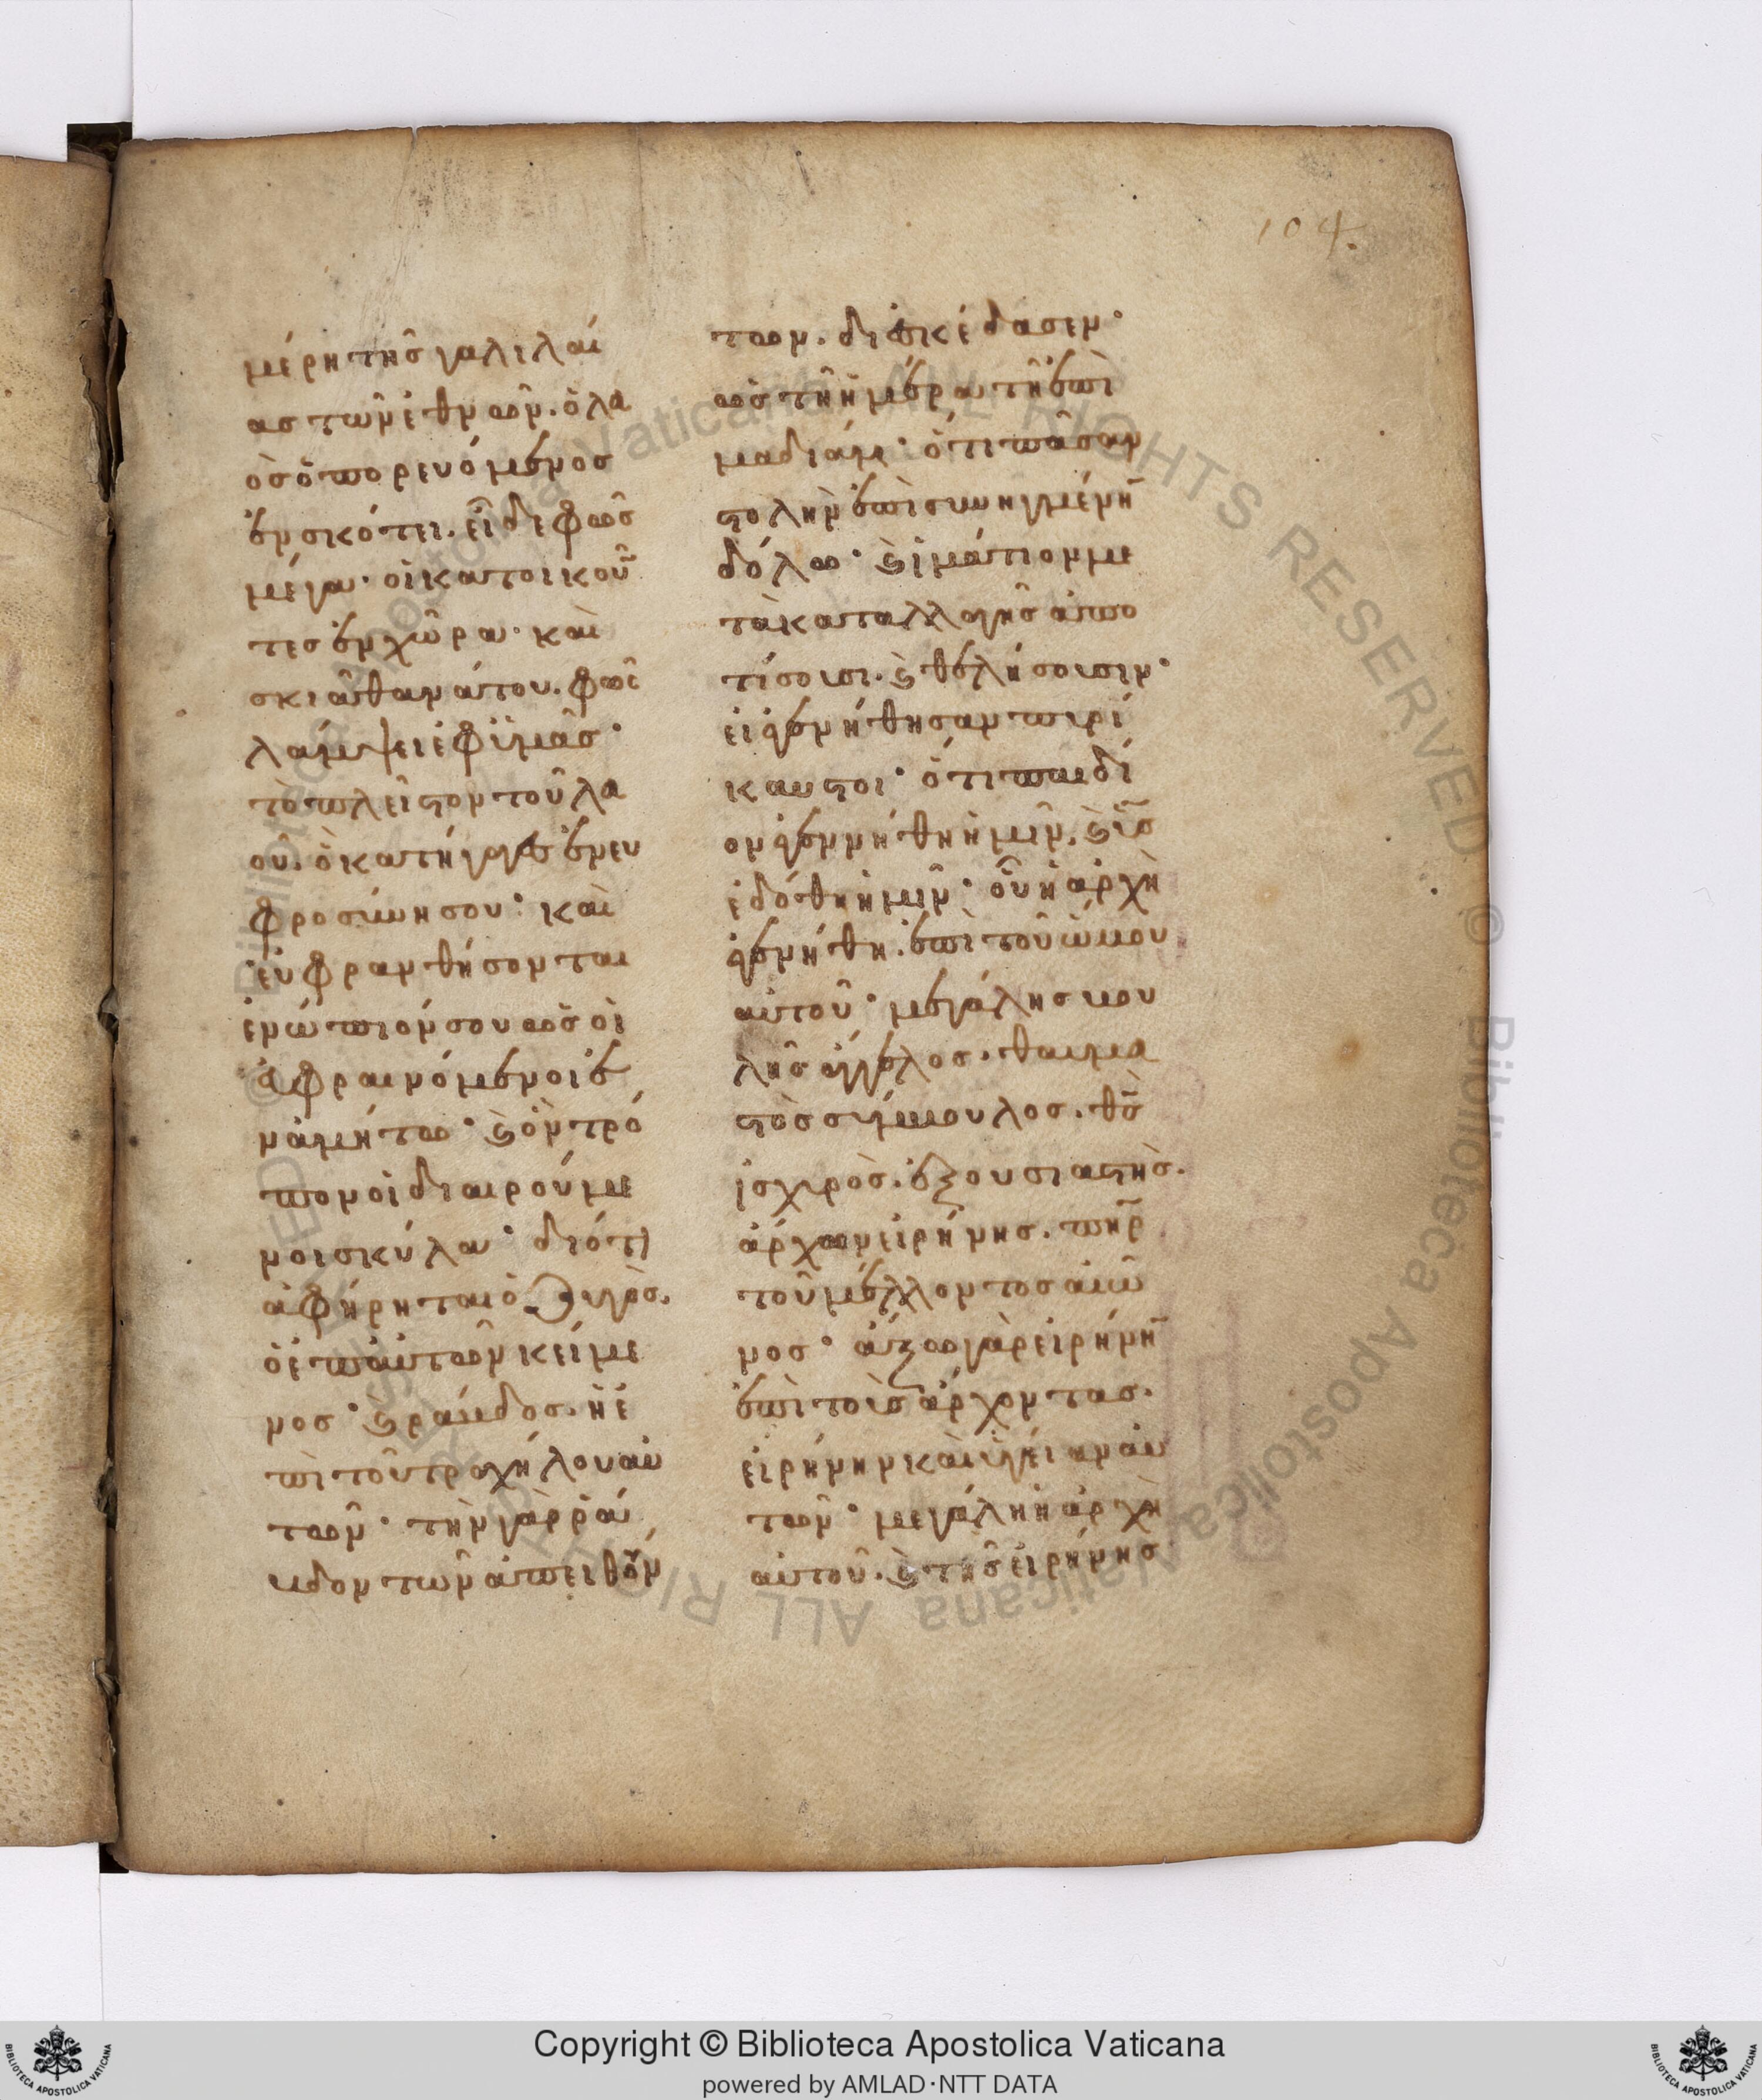 104.
μέρη τῆς γαλιλαί
ας τῶν ἐθνῶν. ὁ λα
ὸς ὁ πορευόμενος
ἐν σκότει. εἶδε φῶς
μέγα· οἱ κατοικοῦ̄
τες ἐν χώρα· καὶ
σκιᾶ θανάτου. φῶς
λάμψει ἐφ ϋμᾶς·
τὸ πλεῖστον τοῦ λα
οῦ. ὃ κατήγαγες ἐν ευ
φροσύνη σου· καὶ
εὐφρανθήσονται
ἐνώπιόν σου ὡς οἱ
ἐυφραινόμενοι ἐ
ν ἀμήτω· κ ὃν τρό
πον οἱ διαιρούμε
νοι σκύλα· διότι
ἀφήρηται ὁ ζυγὸς.
ὁ ἐπ αὐτῶν κείμε
νος· κ ράβδος. ἡ ἐ
πὶ τοῦ τραχήλου αὐ
τῶν· τὴν γὰρ ρά
βδον τῶν ἀπειθούν
των. διεσκέδασεν·
ὡς τῆ ἡμέρα τῆ ἐπὶ
μαδιάμ· ὅτι πᾶσαν
στολὴν ἐπισυνηγμένη̄
δόλω· κ ἱμάτιον με
τὰ καταλλαγῆς ἀπο
τίσουσι. κ θελήσουσιν·
εἰ ἐγενήθησαν πυρί
καυστοι· ὅτι παιδί
ον ἐγεννήθη ἡμῖν. κ ῡς
ἐδόθη ἡμῖν· οὗ ἡ ἀρχὴ
ἐγενήθη. ἐπὶ τοῦ ὤμου
αὐτοῦ· μεγάλης βου
λῆς ἄγγελος. θαυμα
στὸς σύμβουλος. θ̄ς
ἰσχυρὸς. ἐξουσιαστὴς.
ἄρχων εἰρήνης. πη̄ρ
τοῦ μέλλοντος αἰῶ
νος· ἄξω γὰρ εἰρήνη̄
ἐπὶ τοὺς ἄρχοντας.
εἰρήνην καὶ ὑγείαν αὐ
τῶν· μεγάλη ἡ ἀρχὴ
αὐτοῦ. κ τῆς εἰρήνης
Copyright © Biblioteca Apostolica Vaticana
powered by AMLAD·NTT DATA